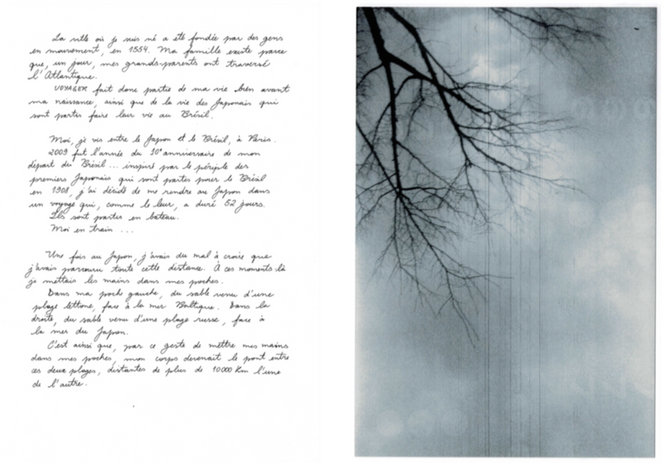 La ville où je suis né a été fondée par des gens
en mouvement, en 1554. Ma famille existe parce
que, un jour, mes grands-parents ont traversé
l'Atlantique.
VOYAGER fait donc partie de ma vie bien avant
ma naissance, ainsi que de la vie des Japonais qui
sont partis faire leur vie au Brésil.
Moi, je vis entre le Japon et le Brésil, à Paris.
2009 fut l'année du 10e anniversaire de mon
départ du Brésil... inspiré par le périple des
premiers Japonais qui sont partis pour le Brésil
en 1908, j'ai décidé de me rendre au Japon dans
un voyage qui, comme le leur, a duré 52 jours.
Ils sont partis en bateau.
Moi en train ...
Une fois au Japon, j'avais du mal à croire que
j'avais parcouru toute cette distance. À ces moments là
je mettais les mains dans mes poches.
Dans ma poche gauche, du sable venu d'une
plage lettone, face à la mer Baltique. Dans la
droite, du sable venu d'une plage russe, face à
la mer du Japon.
C'est ainsi que, par ce geste de mettre mes mains
dans mes poches, mon corps devenait le pont entre
ces deux plages, distantes de plus de 10000 Km l'une
de l'autre.